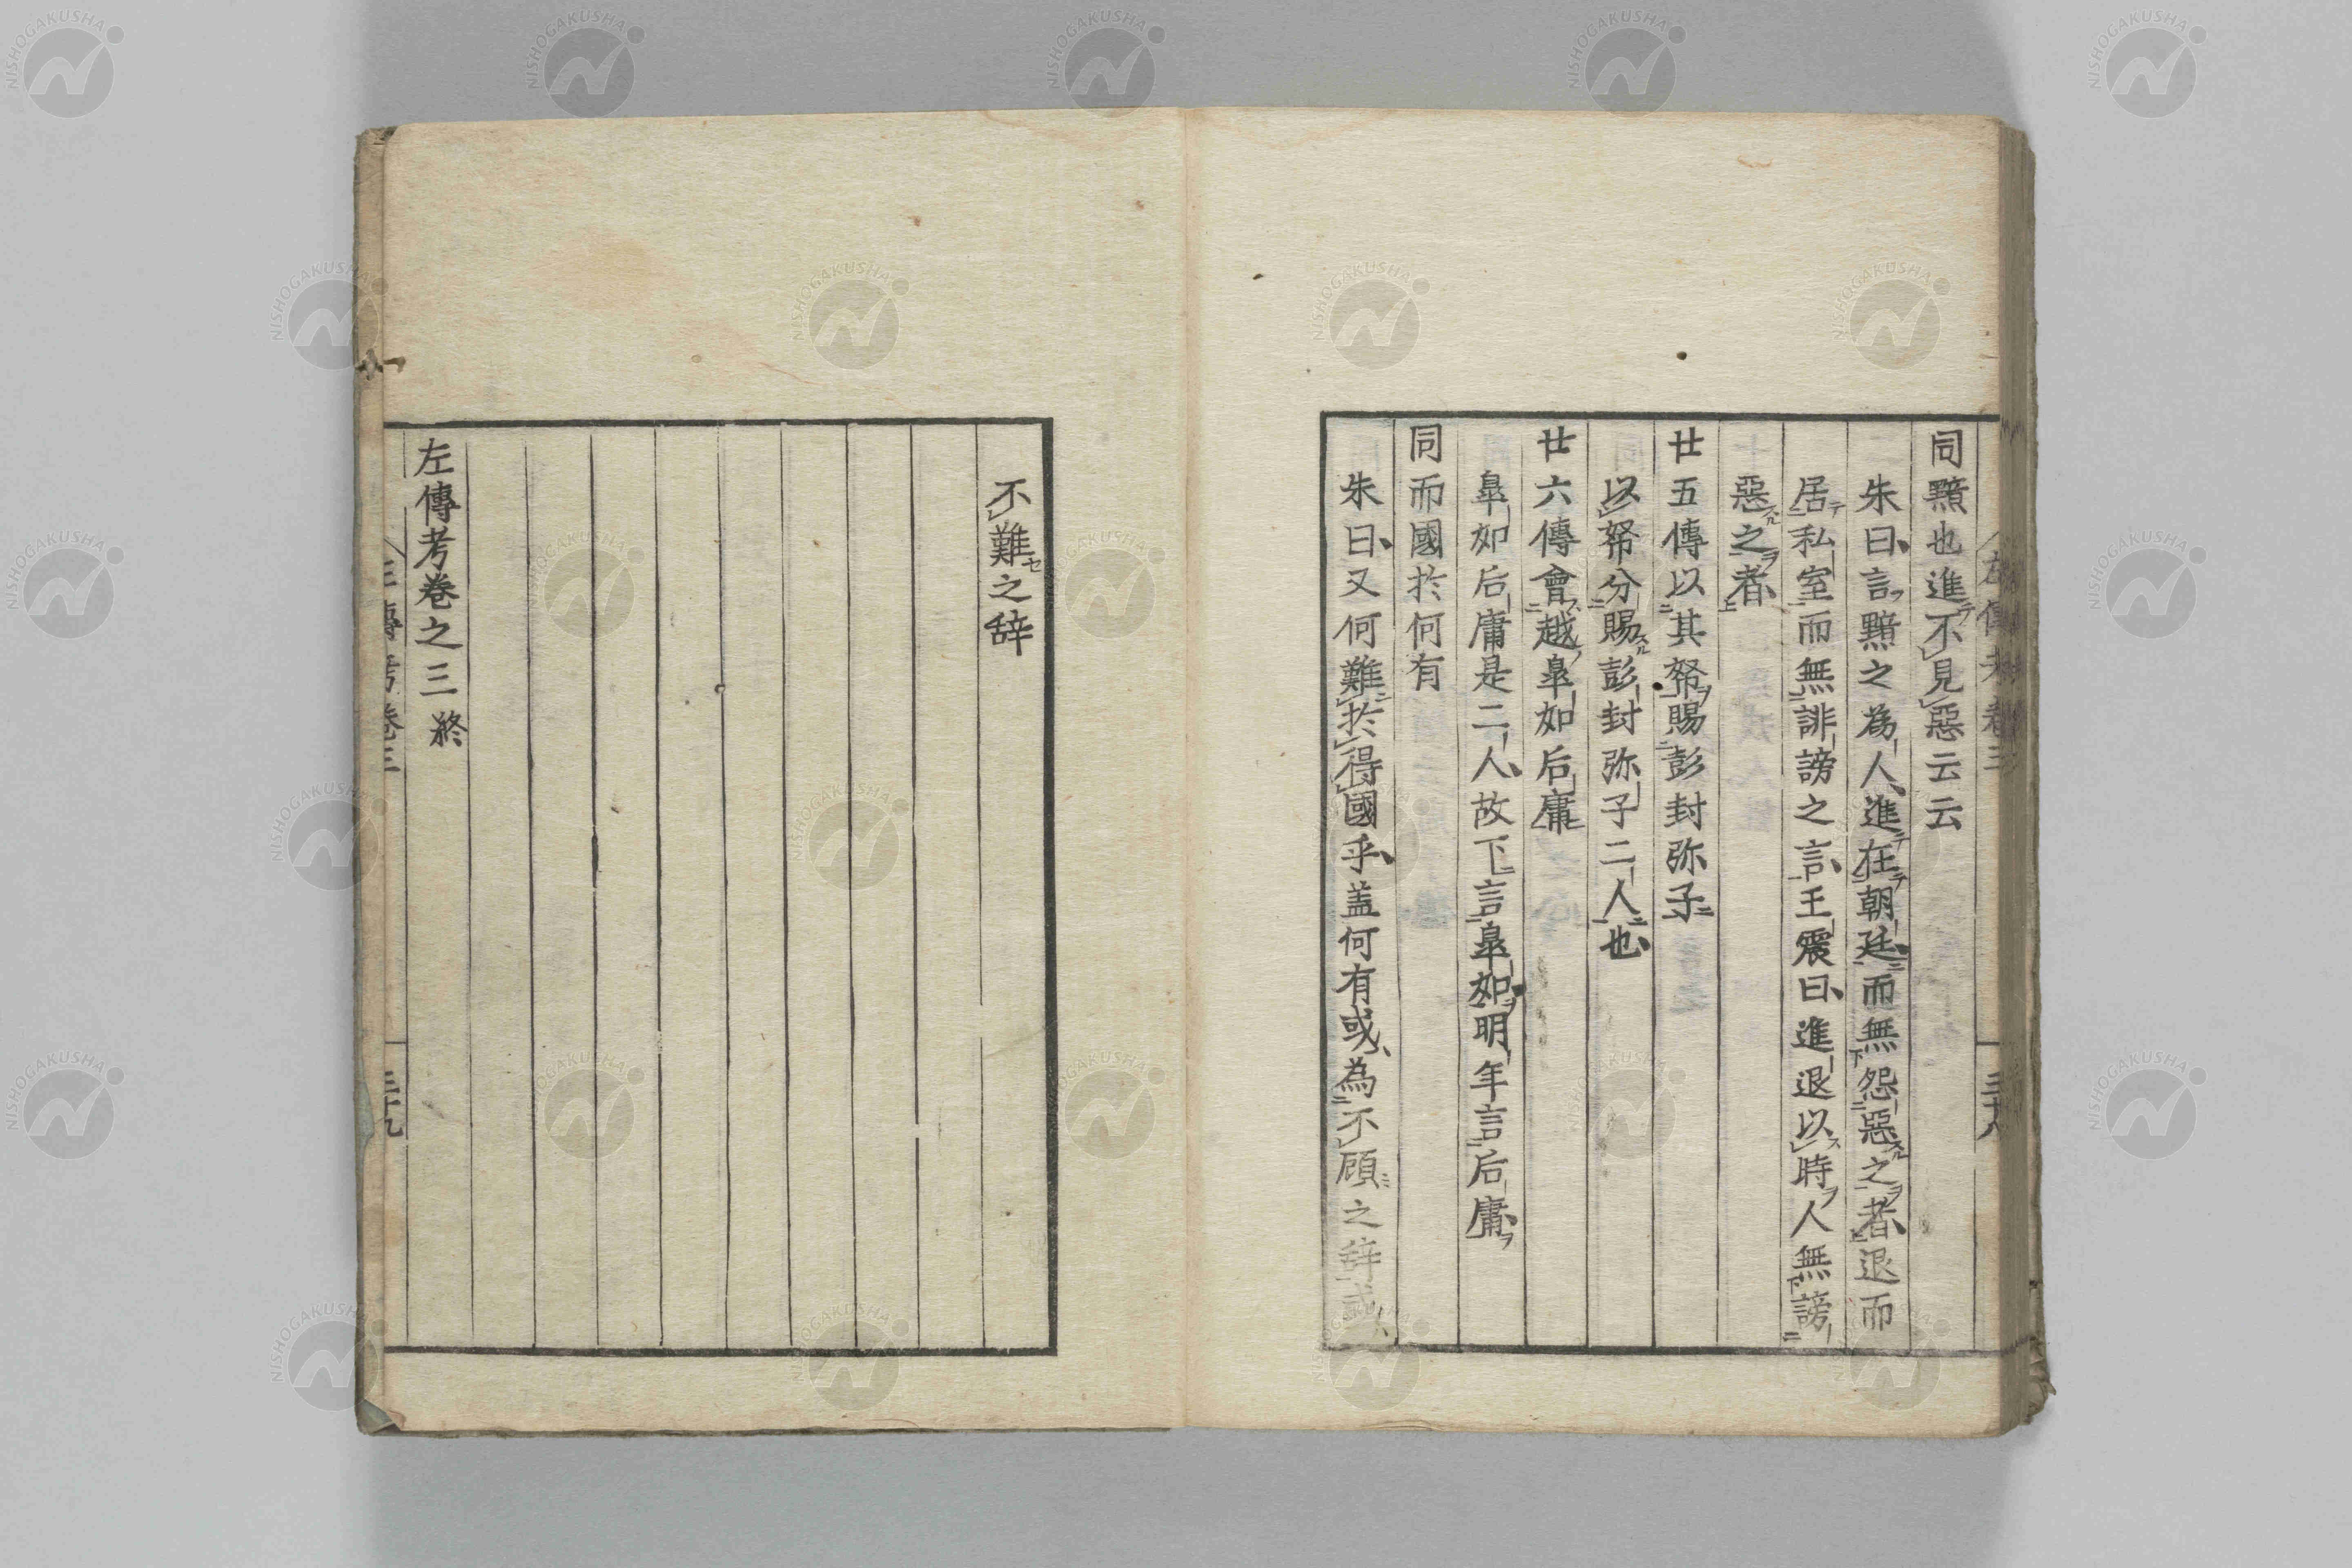 同黶也進不見惡云云
朱曰言黶之為人進在朝廷而無怨惡之者退而
居私室而無誹謗之言王震曰進退以時人無謗
惡之者
廿五傳以其帑賜彭封弥子
以帑分賜彭封弥子二人也
廿六傳會越臯如后庸
臯如后庸是二人故下言臯如明年言后庸
同而國於何有
朱曰又何難於得國乎盖何有或為不顧之辞或
不難之辞
左傳考卷之三終
左傳考卷三
三十八
三十九
NISHOGAKUSHA